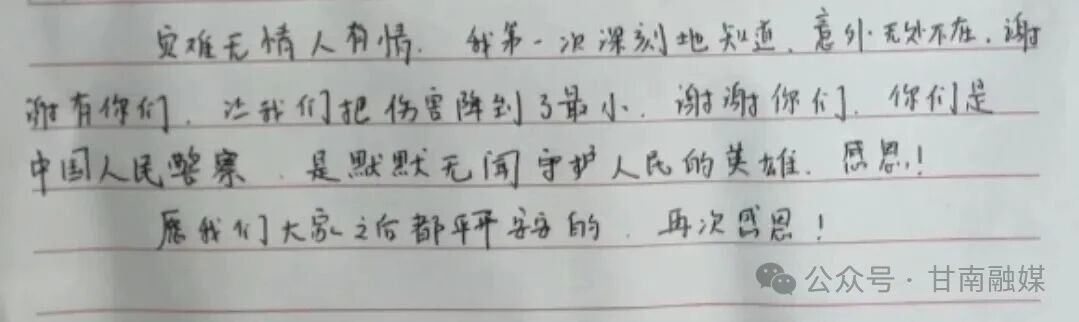 灾难无情人有情. 我第一次深刻地知道. 意外无处不在. 谢
谢有你们. 让我们把伤害降到了最小. 谢谢你们. 你们是
中国人民警察. 是默默无闻守护人民的英雄. 感恩!
愿我们大家之后都平平安安的. 再次感恩!
公众号·甘南融媒